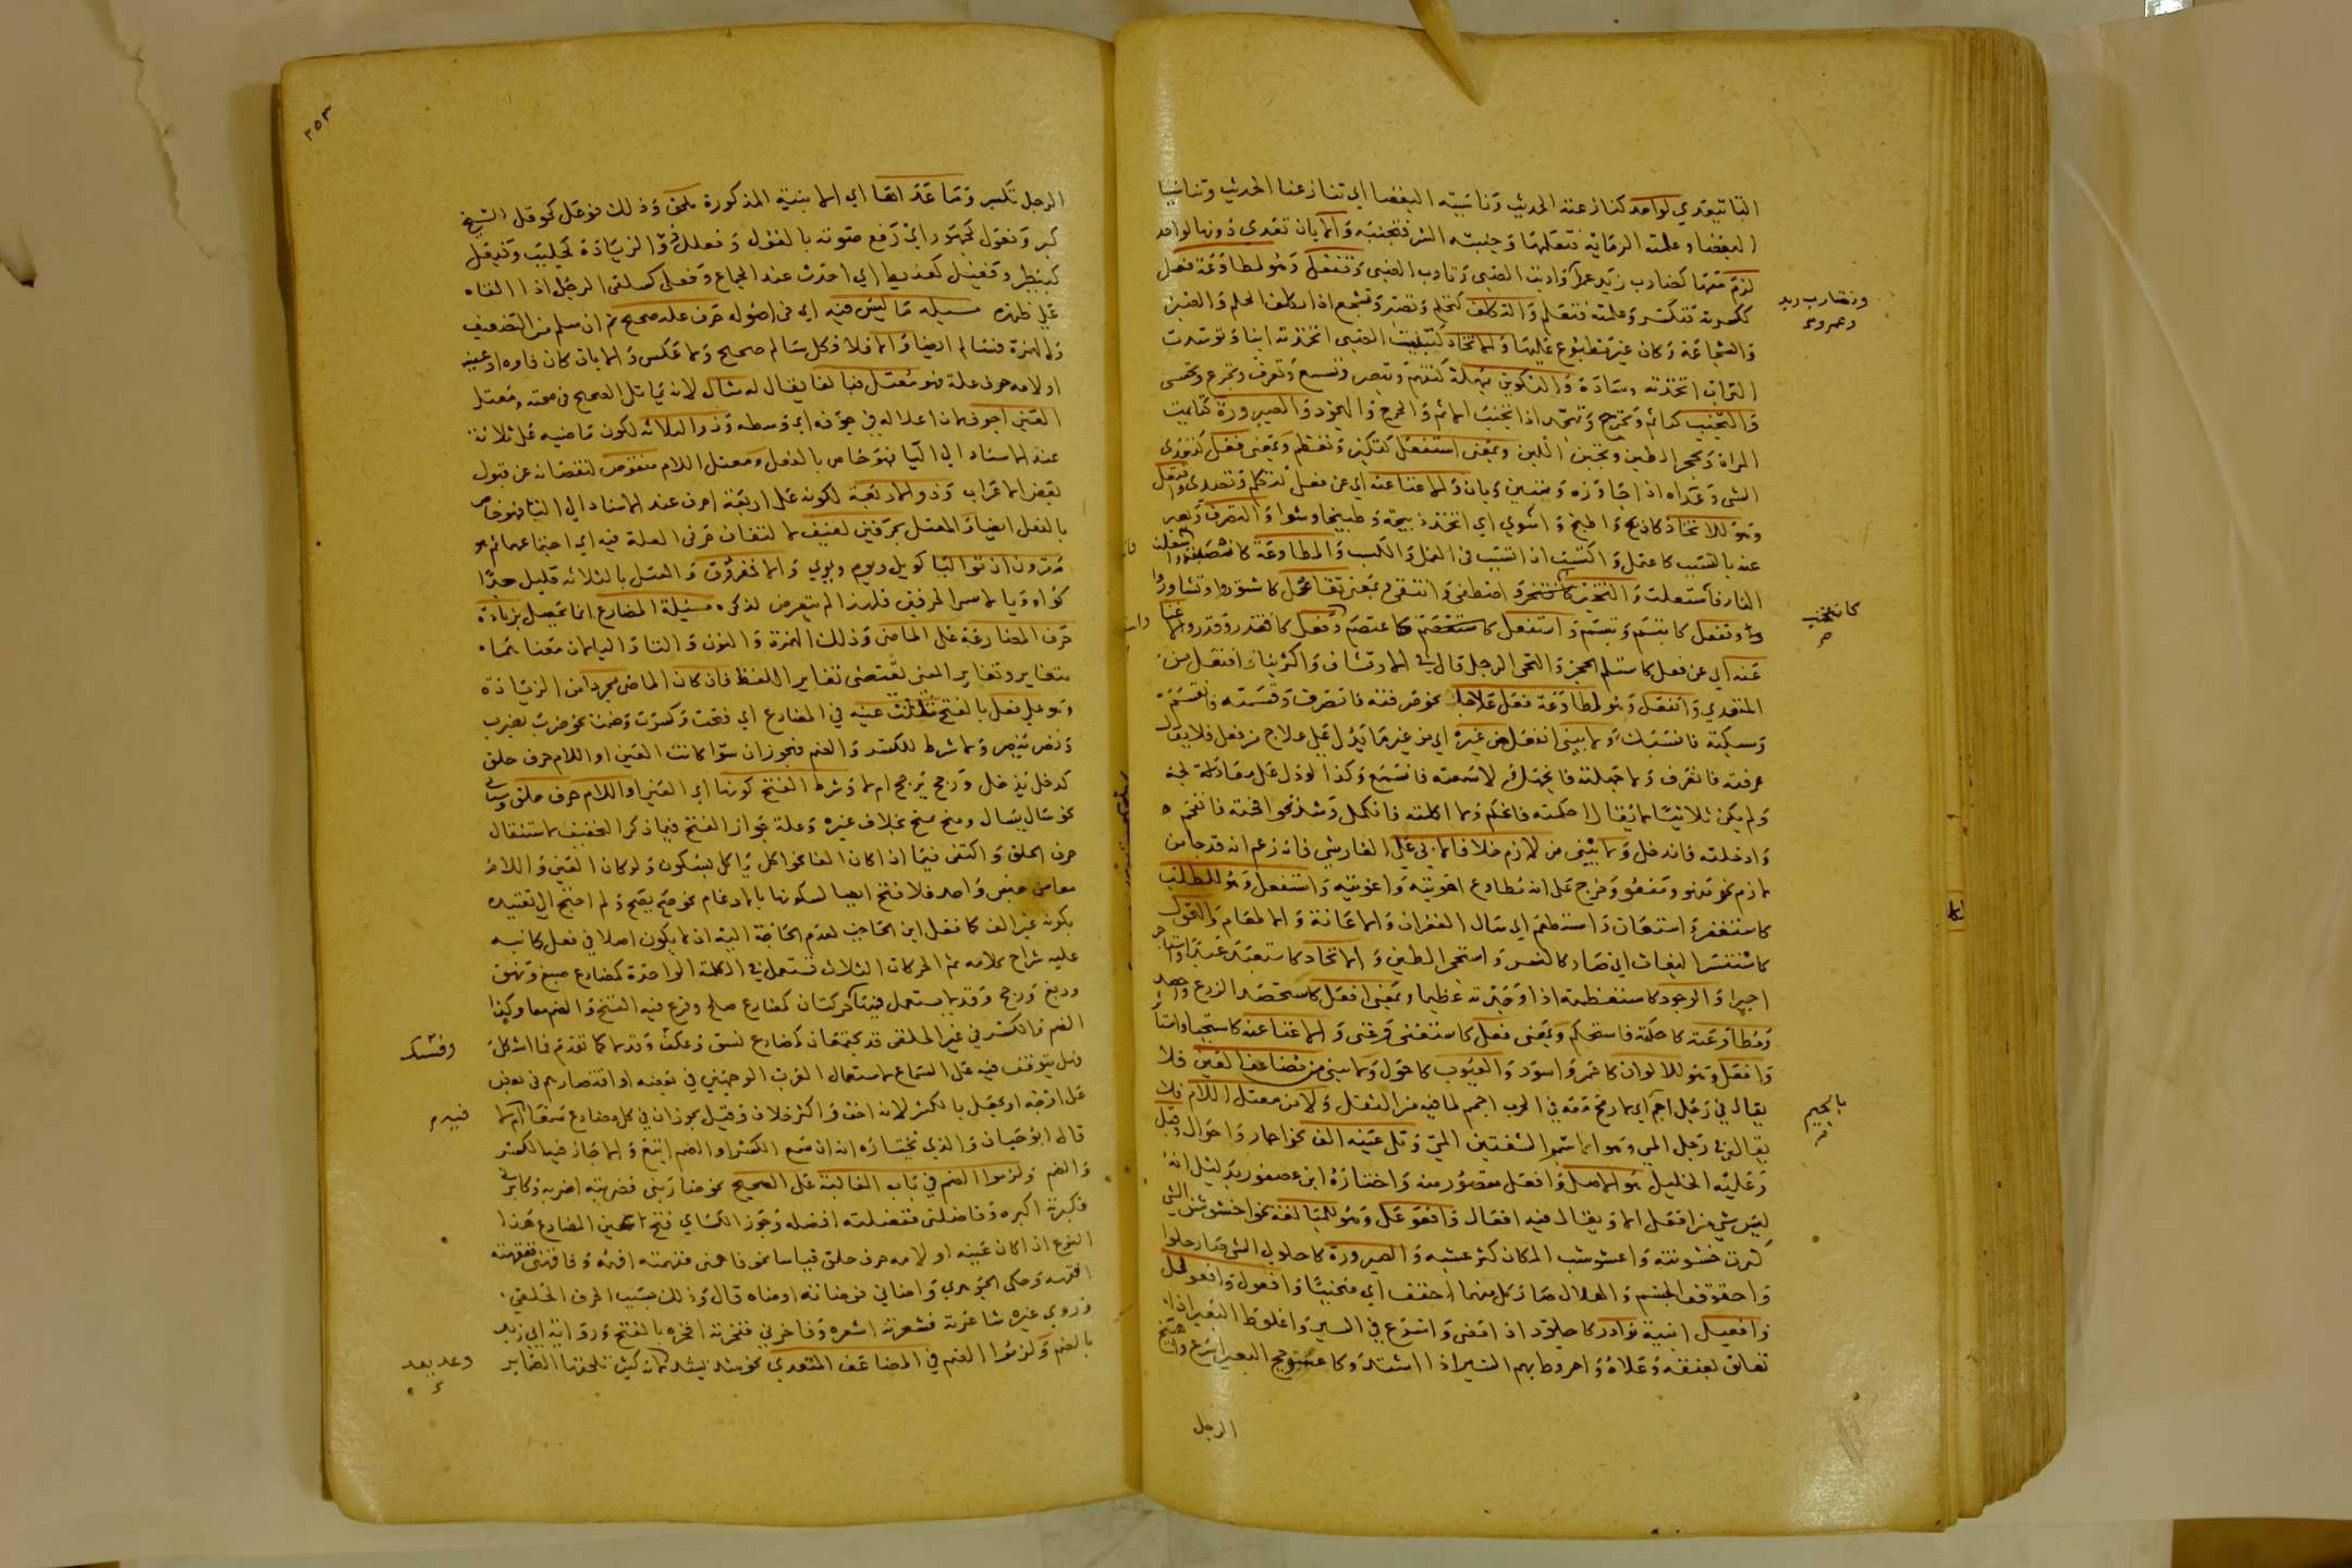 التا تيعدي لواحد كنازعته الحديث وناسيته البغضا اي تنازعنا الحديث وتناسينا
البغضا وعلمته الرماية فتعلمها وجنبته الشر فتجنبه والا بان تعدي دونها لواحد
لزم معها كضارب زيد عمرا وادبت الصبي وتادب الصبي وتفعل وهو لمطاوعة فعل
ككسرته فتكسر وعلمته فتعلم والتكلف كتحلم وتصبر وتشجع اذا تكلف الحلم والصبر
وتضارب زيد
وعمرو
والشجاعة وكان غير مطبوع عليها والاتخاذ كتبنيت الصبي اتخذته ابنا وتوسدت
التراب اتخذته وسادة والتكوين بمهلة كتفهم وتبصر وتسمع وتعرف وتجرع وتحسى
والتجنب كتاثم وتحرج وتهجد اذا تجنب الاثم والحرج والهجود والصيرورة كتايمت
المراة وتحجر الطين وتجبن اللبن وبمعنى استفعل كتكبر وتعظم وبمعنى فعل كتعدى
الشي وعداه اذا جاوزه وتبين وبان والاغنا عنه اي عن فعل كتكلم وتصدى وافتعل
وهو للاتخاذ كاذبح واطبخ واشوي اي اتخذ ذبيحة وطبيخا وشوا والتصرف ويعبر
عنه بالتسبب كاعتمل واكتسب اذا تسبب في العمل والكسب والمطاوعة
النار فاشتعلت والتخير كانتخب واصطفى وانتقى وبمعنى تفاعل كاشتوروا وتشاوروا
كانتخب
صح
وتفعل كابتسم وتبسم واستفعل كاعتصم وفعل كاقتدر وقدر والاغنا
عنه اي عن فعل كاستلم الحجر والتحى الرجل قال في الارتشاف واكثر بنا افتعل من
المتعدي وانفعل وهو لمطاوعة فعل علاجا نحو صرفته فانصرف وقسمته فانقسم
وسبكته فانسبك ولا يبنى انفعل من غيره اي من غير ما يدل على علاج من فعل فلا يقال
عرفته فانعرف ولا جهلته فانجهل ولا سمعته فانسمع وكذا لو دل على معالجة
ولم يكن ثلاثيا لا يقال احكمته فانحكم ولا اكملته فانكمل وشذ نحو اقحمته فانقحم
وادخلته فاندخل ولا يبنى من لازم خلافا لابي علي الفارسي فانه زعم انه قد جا من
لازم نحو منهو ومنغو وخرج على انه مطاوع اهويته واغويته واستفعل وهو للطلب
كاستغفر واستعان واستطعم اي سال الغفران والاعانة والاطعام والتحول
كاستنسر البغاث اي صار كالنسر واستحجر الطين والاتخاذ كاستعبد عبدا واستاجر
اجيرا والوجود كاستعظمته اذا وجدته عظيما وبمعنى افعل كاستحصد الزرع واحصد
ومطاوعته كاحكمته فاستحكم وبمعنى فعل كاستغنى وغنى والاغنا عنه كاستحيا
وافعل وهو للالوان كاحمر واسود والعيوب كاحول ولا يبنى من مضاعف العين فلا
يقال في رجل اجم اي لا رمح معه في الحرب اجمم لما فيه من الثقل ولا من معتل اللام فلا
بالجيم
صح
يقال في رجل المى وهو الاسمر الشفتين المي وتلي عينه الف نحو احمار واحوال وقيل
وعليه الخليل هو الاصل وافعل مقصور منه واختاره ابن عصفور بدليل انه
ليس شي من افعل الا ويقال فيه افعال وافعوعل وهو للمبالغة نحو اخشوشن الشي
كثرت خشونته واعشوشب المكان كثر عشبه والصيرورة كاحلولى الشي صار حلوا
واحقوقف الجسم والهلال صار كل منهما احقف اي منحنيا وافعول وافعولل
وافعيل ابنية نوادر كاجلوذ اذا مضى واسرع في السير واعلوط البعير اذا
تعلق بعنقه وعلاه واخروط بهم السير اذا اشتد وكاعثوجج البعير اسرع واهبيخ
الرجل
٣٥٣
الرجل تكبر وما عداها اي الابنية المذكورة ملحق وذلك فوعل كحوقل الشيخ
كبر وفعول كجهور اي رفع صوته بالقول وفعلل ذو الزيادة كجلبب وفيعل
كبيطر وفعيل كعذيط اي احدث عند الجماع وفعلى كسلقى الرجل اذا القاه
على ظهره مسيلة ما ليس فيه اي في اصوله حرف علة صحيح ثم ان سلم من التضعيف
والهمزة فسالم ايضا والا فلا فكل سالم صحيح ولا عكس والا بان كان فاوه او عينه
او لامه حرف علة فهو معتل فبالفا يقال له مثال لانه يماثل الصحيح في صحته ومعتل
العين اجوف لان اعلاله في جوفه اي وسطه وذو الثلاثة لكون ماضيه على ثلاثة
عند الاسناد الى التا فهو خاص بالفعل ومعتل اللام منقوص لنقصانه عن قبول
بعض الاعراب وذو الاربعة لكونه على اربعة احرف عند الاسناد الى التا فهو خاص
بالفعل ايضا والمعتل بحرفين لفيف لالتفاف حرفي العلة فيه اي اجتماعهما ثم هو
مقرون ان تواليا كويل ويوم وروي والا مفروق والمعتل بالثلاثة قليل جدا
كواو ويا لاسمي الحرفين فلهذا لم يتعرض لذكره مسيلة المضارع انما يحصل بزيادة
حرف المضارعة على الماضي وذلك الهمزة والنون والتا واليا لان معناهما
متغاير وتغاير المعنى يقتضي تغاير اللفظ فان كان الماضي مجردا من الزيادة
وهو على فعل بالفتح تثلث عينه في المضارع اي فتحت وكسرت وضمت نحو ضرب يضرب
ونصر ينصر ولا شرط للكسر والضم فيجوزان سوا كانت العين او اللام حرف حلق
كدخل يدخل ورجح يرجح ام لا وشرط الفتح كونها اي العين او اللام حرف حلق
نحو سال يسال ومنح يمنح بخلاف غيره وعلة جواز الفتح فيما ذكر التخفيف لاستثقال
حرف الحلق واكتفى فيما اذا كان الفا نحو اكل ياكل بسكون ولو كان العين واللام
معا من جنس واحد فلا فتح ايضا لسكونها بالادغام نحو صح يصح ولم احتج الى تقييده
بكونه غير الف كما فعل ابن الحاجب لعدم الحاجة اليه اذ لا يكون اصلا في فعل كما نبه
عليه شراح كلامه ثم الحركات الثلاث تستعمل في الكلمة الواحدة كمضارع صبغ ونهق
ودبغ ورجح وقد لا يستعمل فيها حركتان كمضارع صلح وفرغ فيه الفتح والضم معا وكذا
الضم والكسر في غير الحلقي قد يجتمعان كمضارع فسق وعكف وقد لا كما تقدم فان اشكل
هل يتوقف فيه على السماع لاستعمال العرب الوجهين في بعضه او اقتصارهم في بعض
على احدهما او يجعل بالكسر لانه اخف واكثر خلاف وقيل يجوزان في كل مضارع سمعا ام لا
قال ابو حيان والذي نختاره انه ان سمع الكسر او الضم اتبع والا جاز فيه الكسر
والضم ولزموا الضم في باب المغالبة على الصحيح نحو ضاربني فضربته اضربه وكابرني
فكبرته اكبره وفاضلني ففضلته افضله وجوز الكساي فتح عين المضارع هذا
النوع اذا كان عينه او لامه حرف حلق قياسا نحو فاهمني ففهمته افهمه وفاقهني ففقهته
افقهه وحكى الجوهري واضاني فوضاته اوضاه قال وذلك بسبب الحرف الحلقي
وروى غيره شاعرته فشعرته اشعره وفاخرني ففخرته افخره بالفتح ورواية ابي زيد
بالضم ولزموا الضم في المضاعف المتعدي نحو شده يشده لانه كثيرا تلحقه الضماير